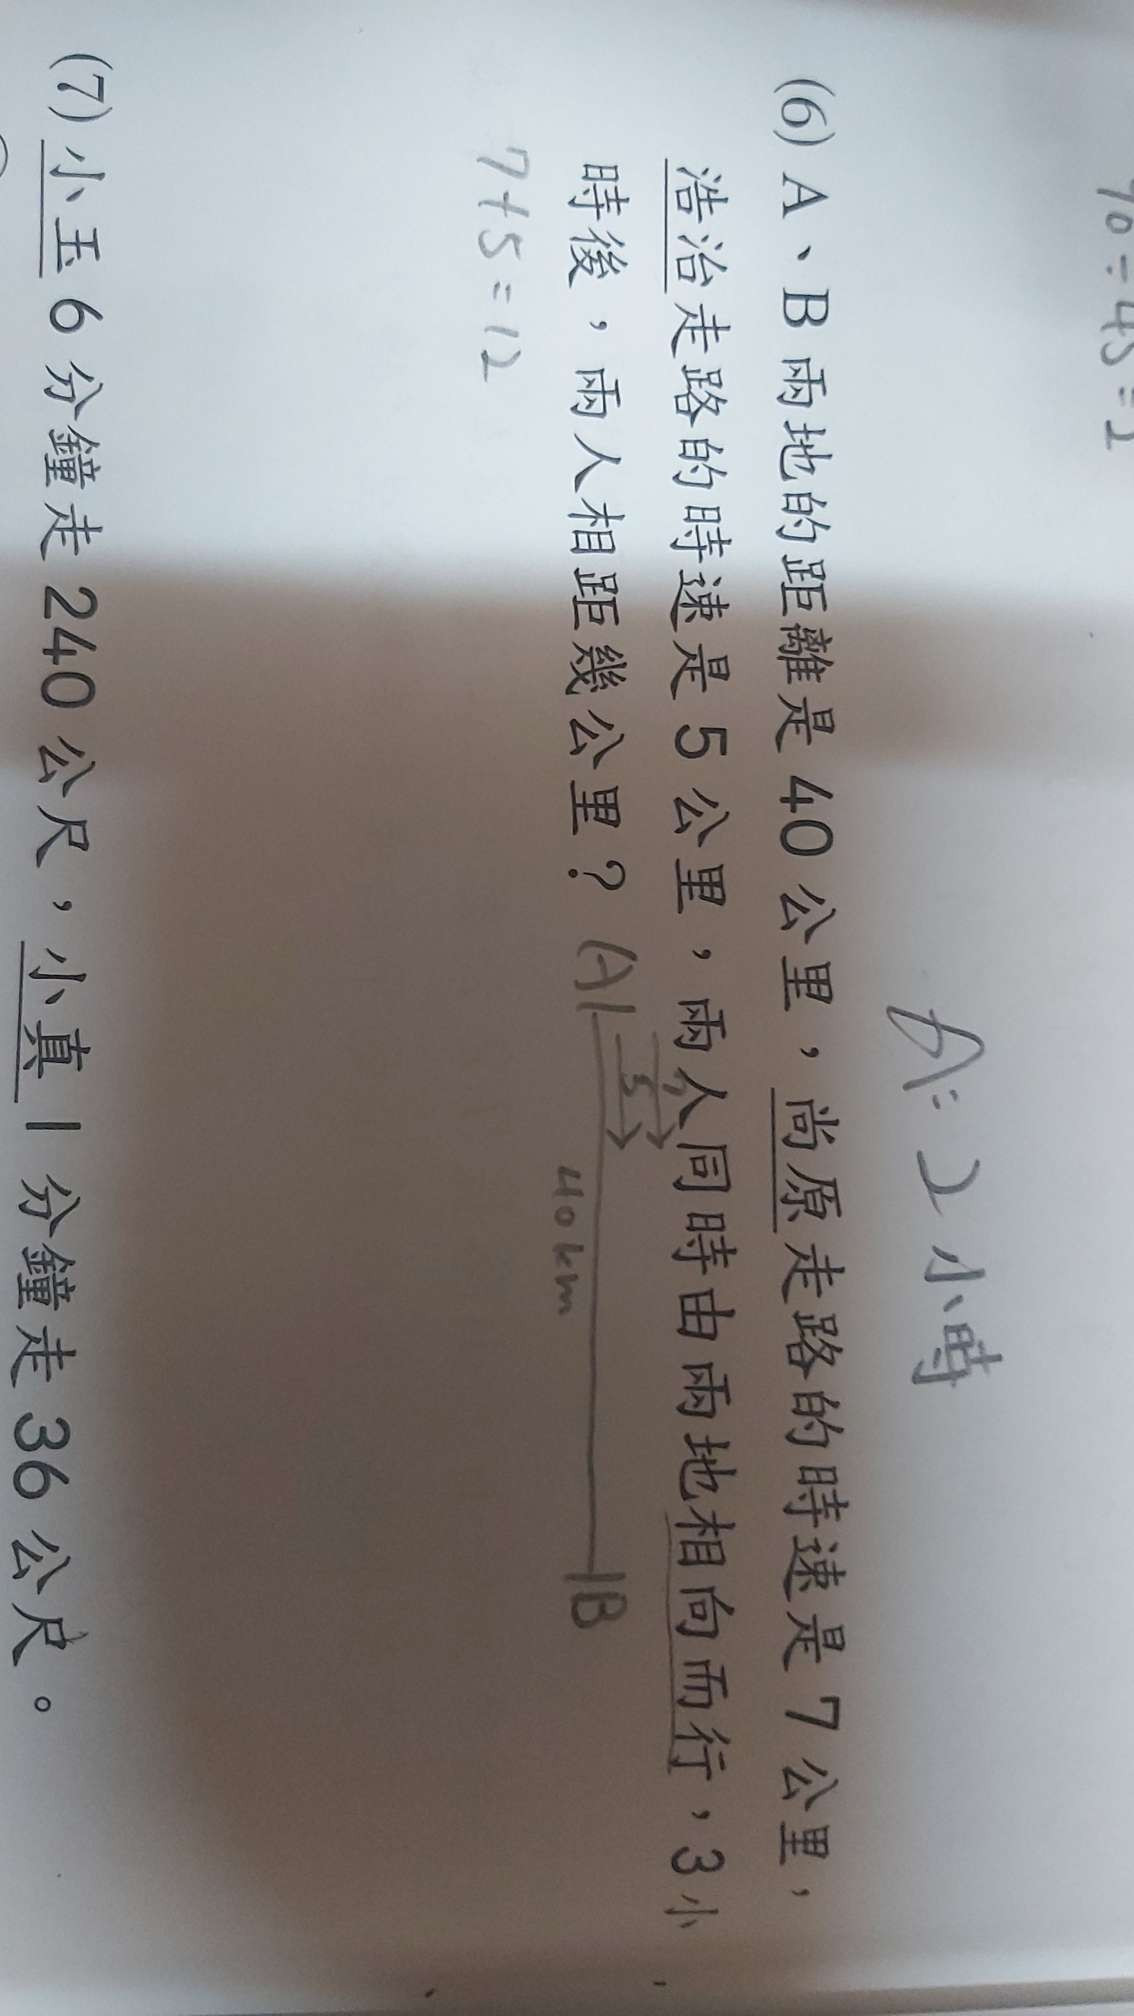 90÷45=2
A=2小時
(6) A、B兩地的距離是40公里，尚原走路的時速是7公里，
浩治走路的時速是5公里，兩人同時由兩地相向而行，3小
時後，兩人相距幾公里？
7
5
A
B
40km
7+5=12
(7) 小玉6分鐘走240公尺，小真1分鐘走36公尺。